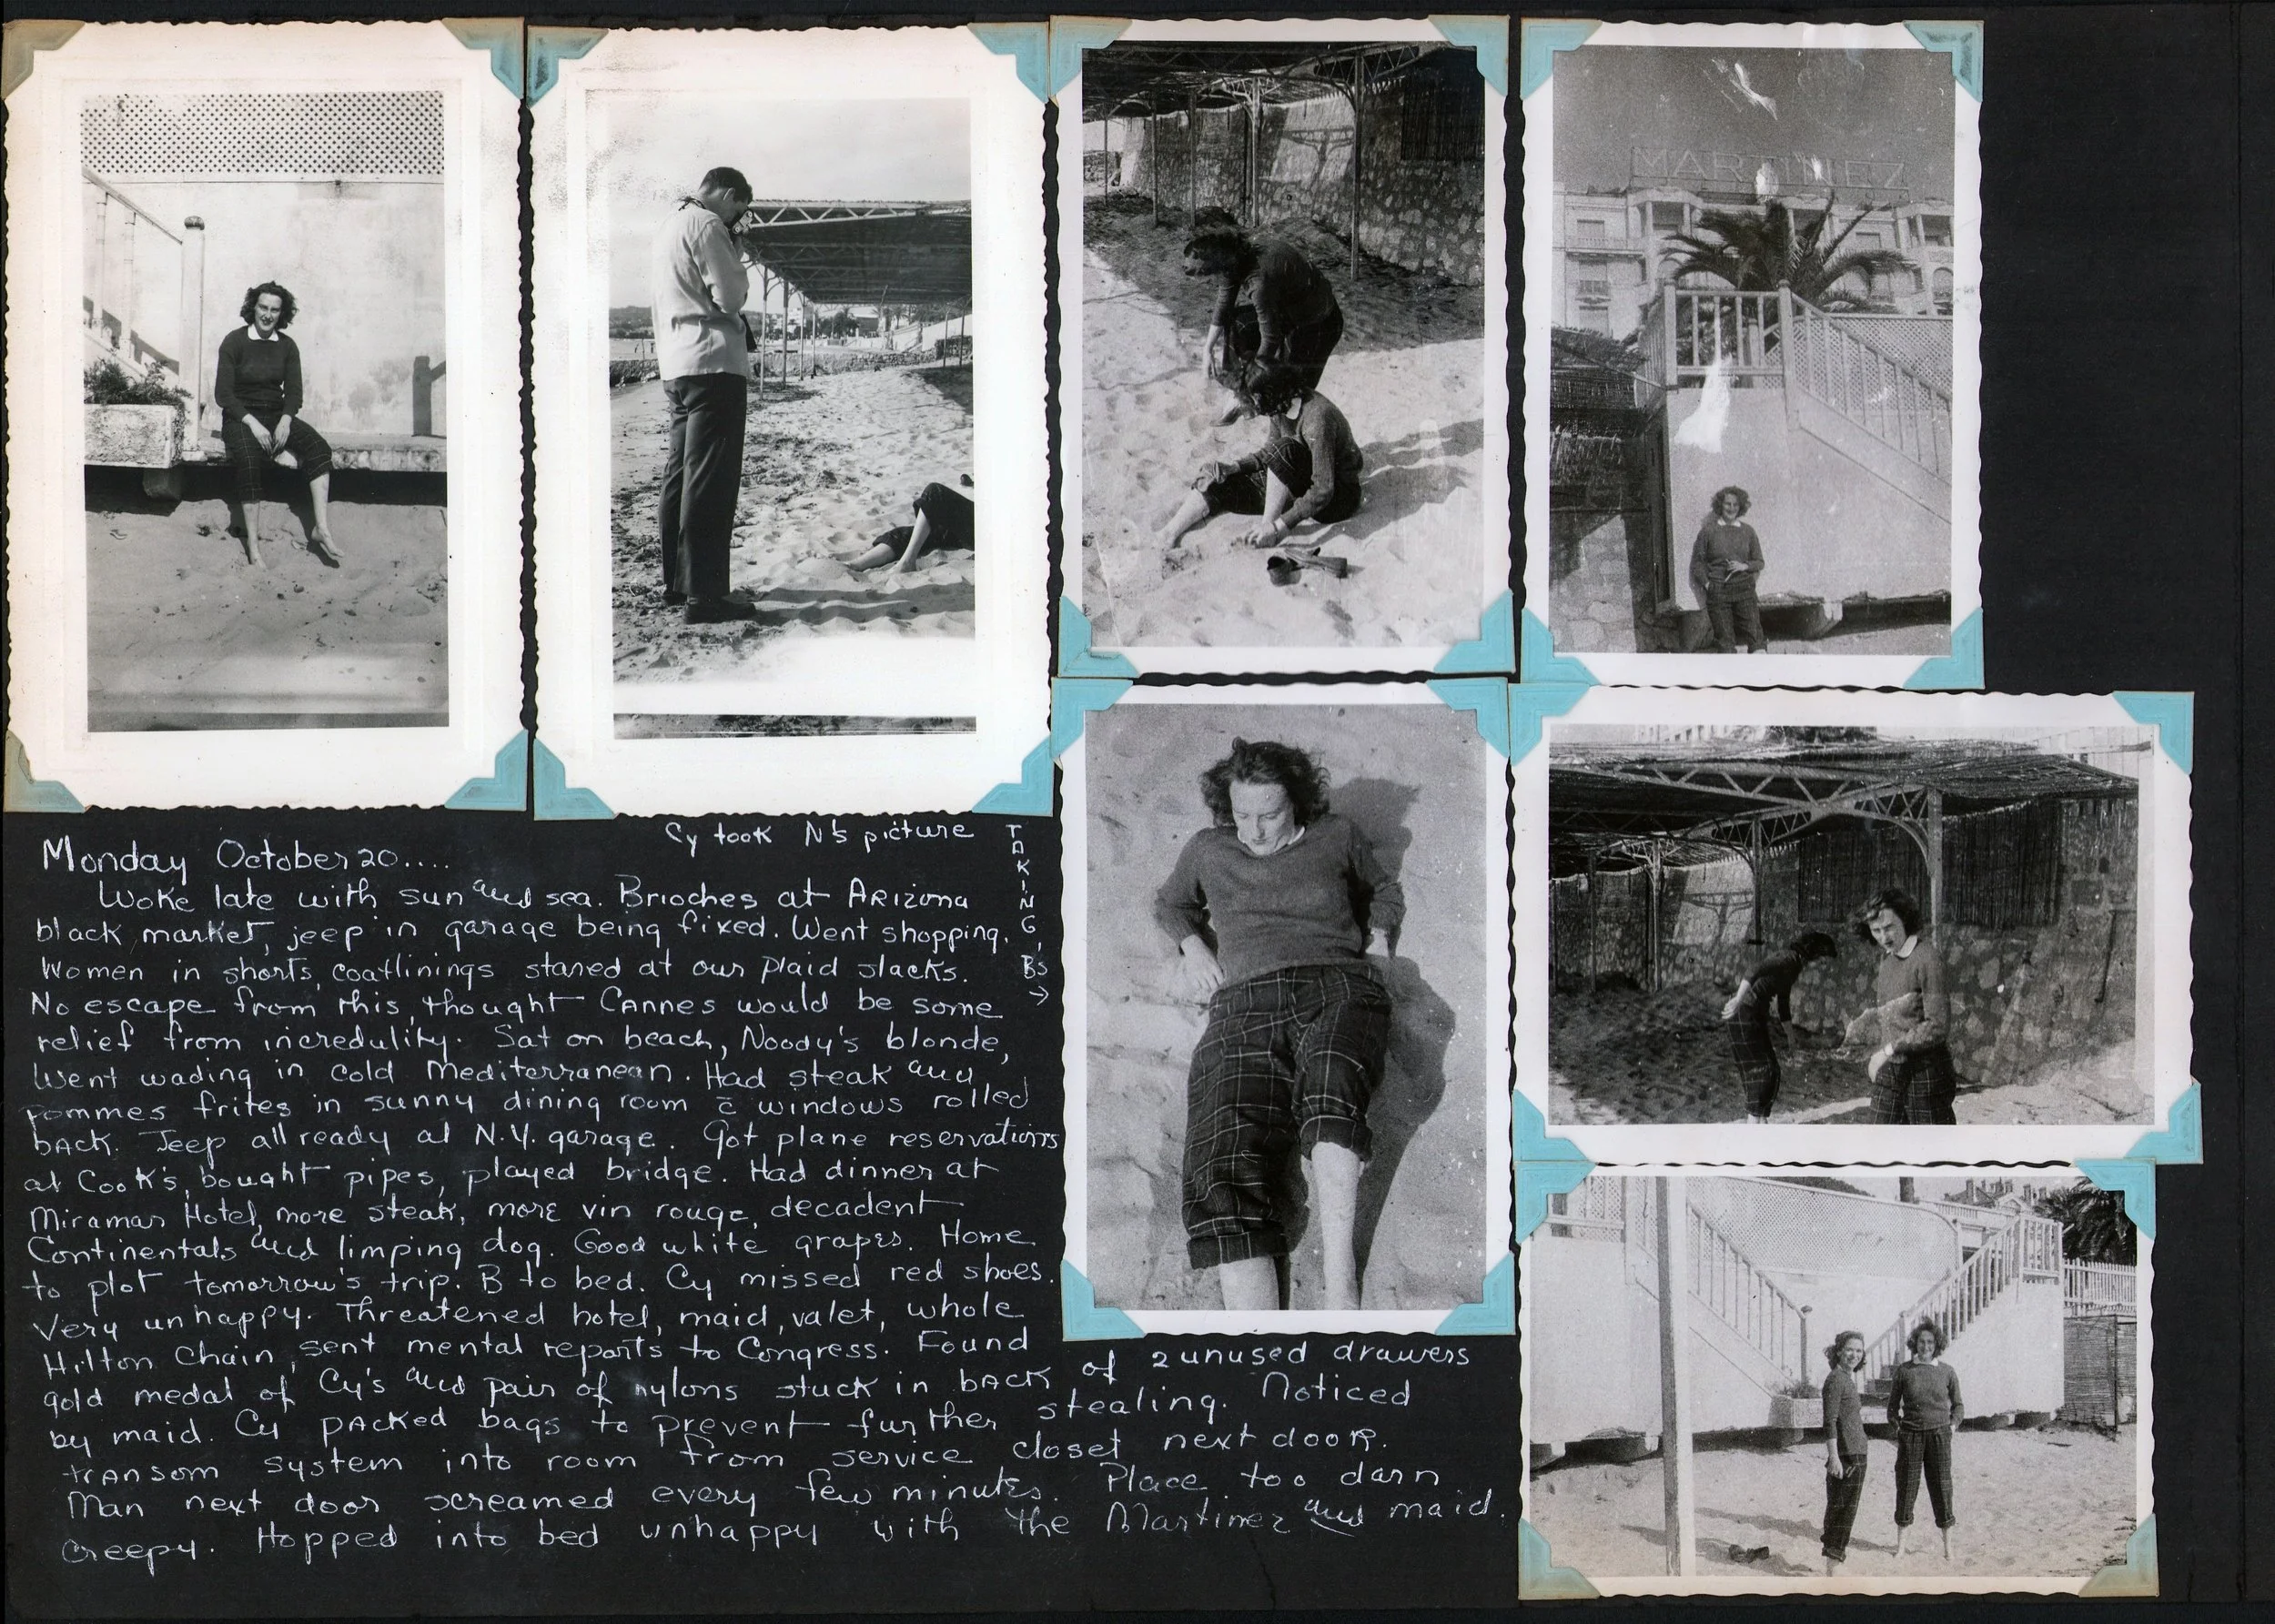 MARTINEZ
Cy took N's picture
TAKING B's →
Monday October 20....
Woke late with sun and sea. Brioches at Arizona
black market, jeep in garage being fixed. Went shopping.
Women in shorts, coatlinings stared at our plaid slacks.
No escape from this, thought Cannes would be some
relief from incredulity. Sat on beach, Noody's blonde,
Went wading in cold Mediterranean. Had steak and
pommes frites in sunny dining room c̄ windows rolled
back. Jeep all ready at N.Y. garage. Got plane reservations
at Cook's, bought pipes, played bridge. Had dinner at
Miramar Hotel, more steak, more vin rouge, decadent
Continentals and limping dog. Good white grapes. Home
to plot tomorrow's trip. B to bed. Cy missed red shoes.
Very unhappy. Threatened hotel, maid, valet, whole
Hilton Chain, sent mental reports to Congress. Found
gold medal of Cy's and pair of nylons stuck in back of 2 unused drawers
by maid. Cy packed bags to prevent further stealing. Noticed
transom system into room from service closet next door.
Man next door screamed every few minutes. Place too darn
creepy. Hopped into bed unhappy with the Martinez and maid.